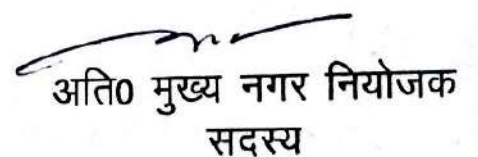 अति0 मुख्य नगर नियोजक
सदस्य